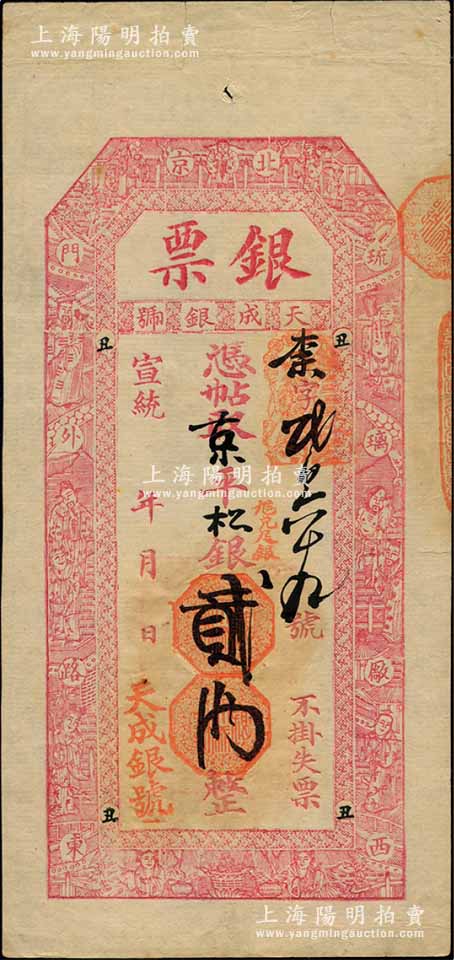 上海陽明拍賣
www.yangmingauction.com
北京
琉璃廠西
門外路東
銀票
天成銀號
丑
丑
柰字貳百六十九號
不掛失票
憑帖發京平松銀貳兩整
宣統 年 月 日
天成銀號
丑
丑
上海陽明拍賣
www.yangmingauction.com
上海陽明拍賣
www.yangmingauction.com